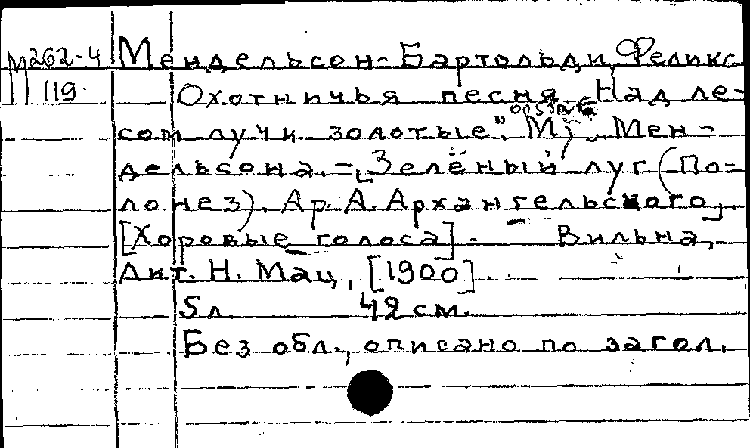 М262-4 Мендельсон-Бартольди, Феликс
119. Охотничья песня „Над ле-
сом лучи золотые." М., Мен-
дельсона. = „Зелёный луг (По-
лонез). Ар. А. Архангельского„
[Хоровые голоса] - Вильна,
Лит. Н. Мац, [1900]
5 л. 42 см.
Без обл., описано по загол.